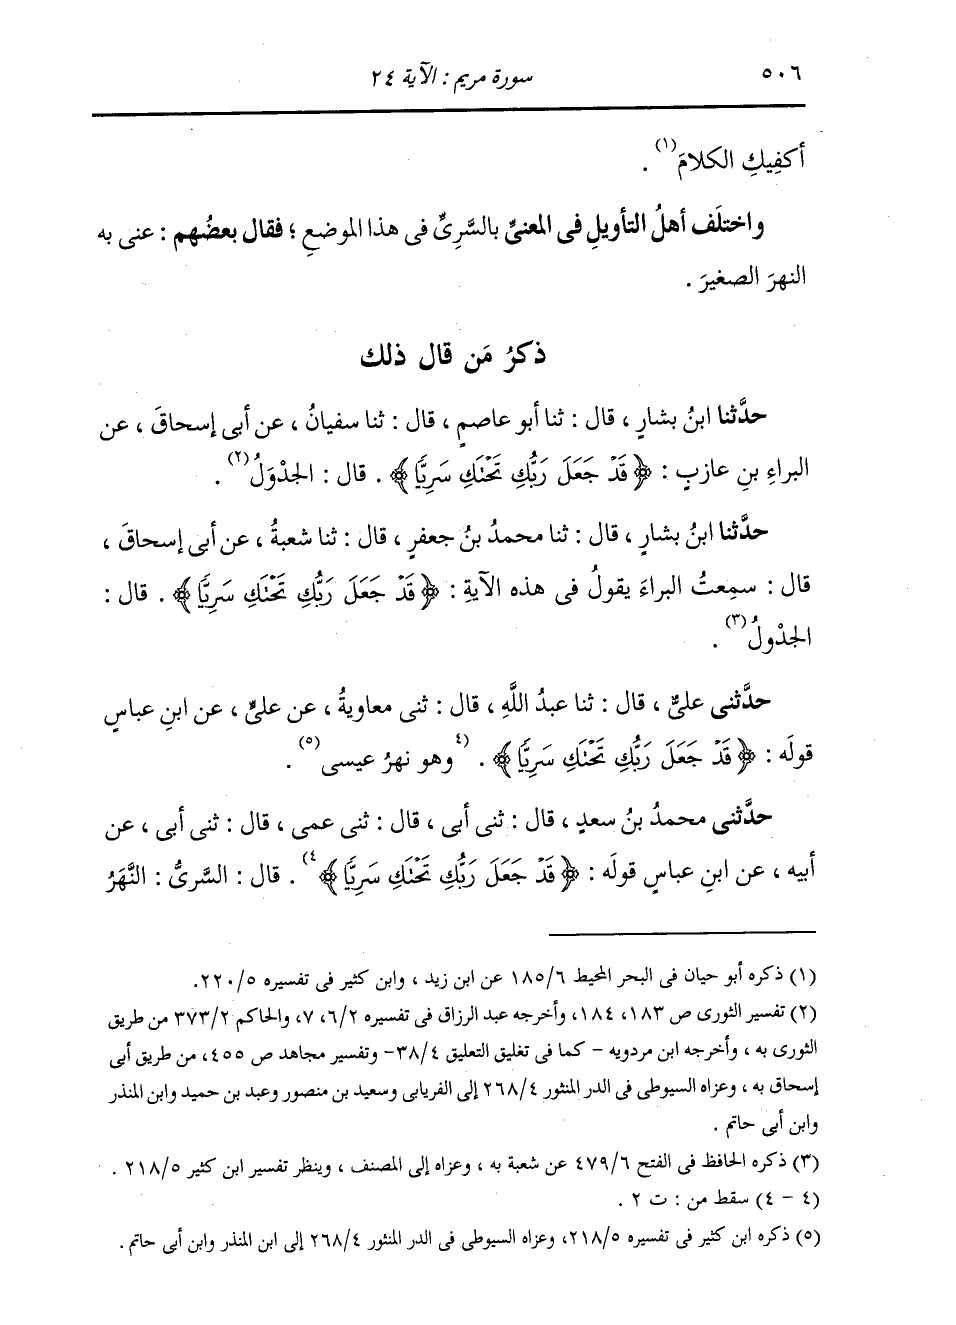 ٥٠٦ سورة مريم : الآية ٢٤
أكفِيكِ الكلامَ(١) .
واختلَف أهلُ التأويلِ فى المعنىِّ بالسَّرِىِّ فى هذا الموضعِ ؛ فقال بعضُهم : عنى به
النهرَ الصغيرَ .
ذكرُ مَن قال ذلك
حدَّثنا ابنُ بشارٍ ، قال : ثنا أبو عاصمٍ ، قال : ثنا سفيانُ ، عن أبى إسحاقَ ، عن
البراءِ بنِ عازبٍ : ﴿ قَدْ جَعَلَ رَبُّكِ تَحْتَكِ سَرِيًّا ﴾ . قال : الجدْوَلُ(٢) .
حدَّثنا ابنُ بشارٍ ، قال : ثنا محمدُ بنُ جعفرٍ ، قال : ثنا شعبةُ ، عن أبى إسحاقَ ،
قال : سمِعتُ البراءَ يقولُ فى هذه الآيةِ : ﴿ قَدْ جَعَلَ رَبُّكِ تَحْتَكِ سَرِيًّا ﴾ . قال :
الجدْولُ(٣) .
حدَّثنى علىٌّ ، قال : ثنا عبدُ اللَّهِ ، قال : ثنى معاويةُ ، عن علىٍّ ، عن ابنِ عباسٍ
قولَه : ﴿ قَدْ جَعَلَ رَبُّكِ تَحْتَكِ سَرِيًّا ﴾ . (٤وهو نهرُ عيسى(٥) .
حدَّثنى محمدُ بنُ سعدٍ ، قال : ثنى أبى ، قال : ثنى عمى ، قال : ثنى أبى ، عن
أبيه ، عن ابنِ عباسٍ قولَه : ﴿ قَدْ جَعَلَ رَبُّكِ تَحْتَكِ سَرِيًّا ﴾٤) . قال : السَّرِىُّ : النَّهَرُ
(١) ذكره أبو حيان فى البحر المحيط ١٨٥/٦ عن ابن زيد ، وابن كثير فى تفسيره ٢٢٠/٥.
(٢) تفسير الثورى ص ١٨٣، ١٨٤، وأخرجه عبد الرزاق فى تفسيره ٦/٢، ٧، والحاكم ٣٧٣/٢ من طريق
الثورى به ، وأخرجه ابن مردويه – كما فى تغليق التعليق ٣٨/٤– وتفسير مجاهد ص ٤٥٥، من طريق أبى
إسحاق به ، وعزاه السيوطى فى الدر المنثور ٢٦٨/٤ إلى الفريابى وسعيد بن منصور وعبد بن حميد وابن المنذر
وابن أبى حاتم .
(٣) ذكره الحافظ فى الفتح ٤٧٩/٦ عن شعبة به ، وعزاه إلى المصنف ، وينظر تفسير ابن كثير ٢١٨/٥ .
(٤ – ٤) سقط من : ت ٢ .
(٥) ذكره ابن كثير فى تفسيره ٢١٨/٥، وعزاه السيوطى فى الدر المنثور ٢٦٨/٤ إلى ابن المنذر وابن أبى حاتم .